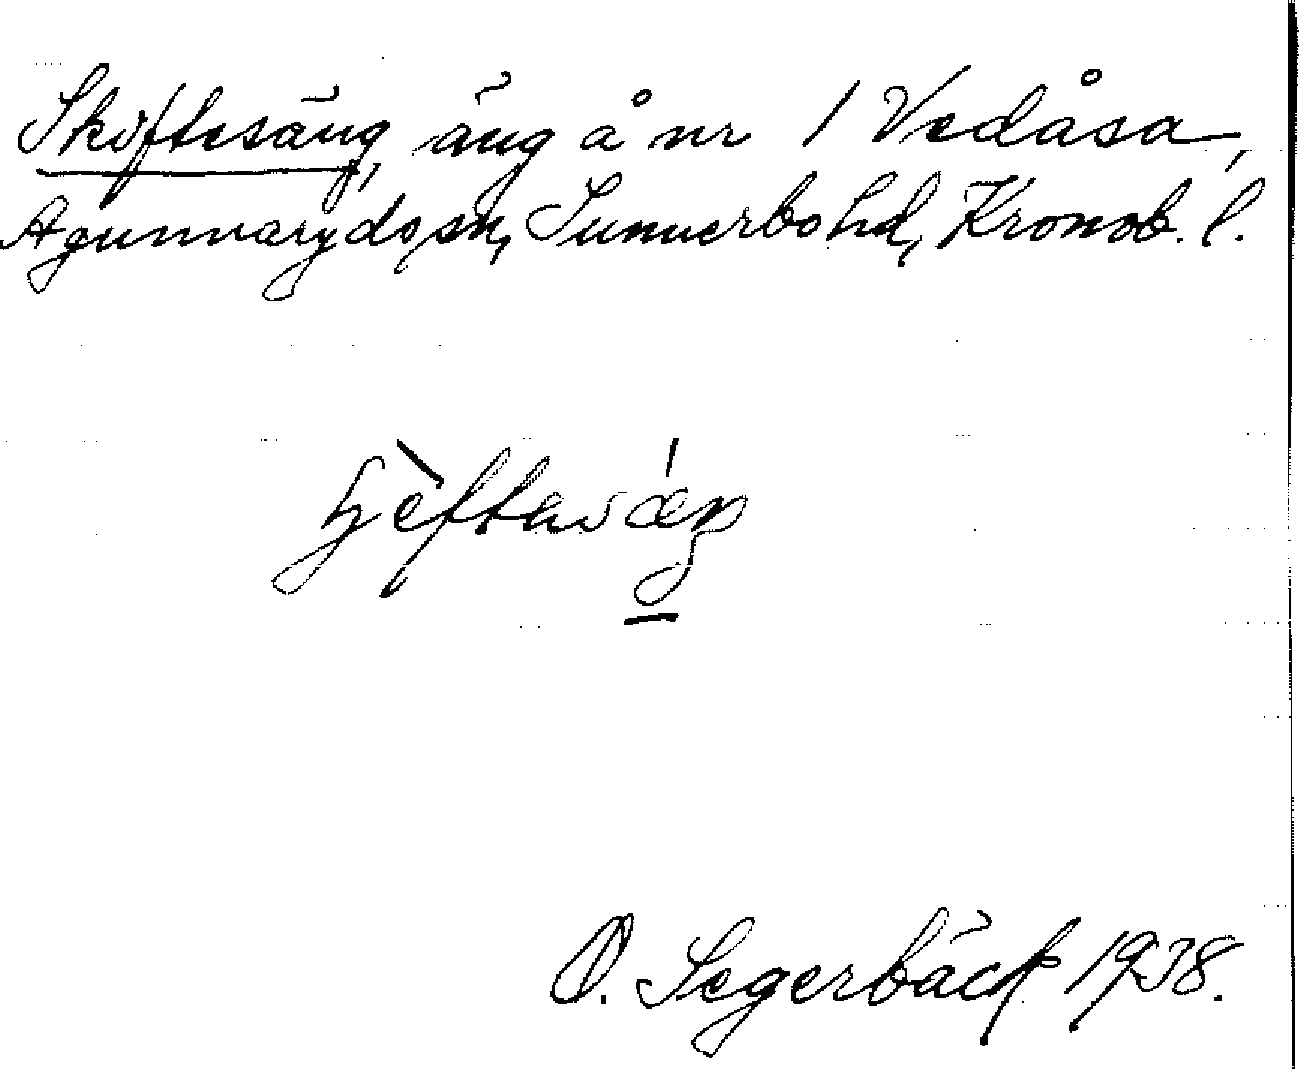 Skiftesäng, äng å nr 1 Vedåsa,
Agunnaryds sn, Sunnerbo hd, Kronob. l.
O. Segerbäck 1938.